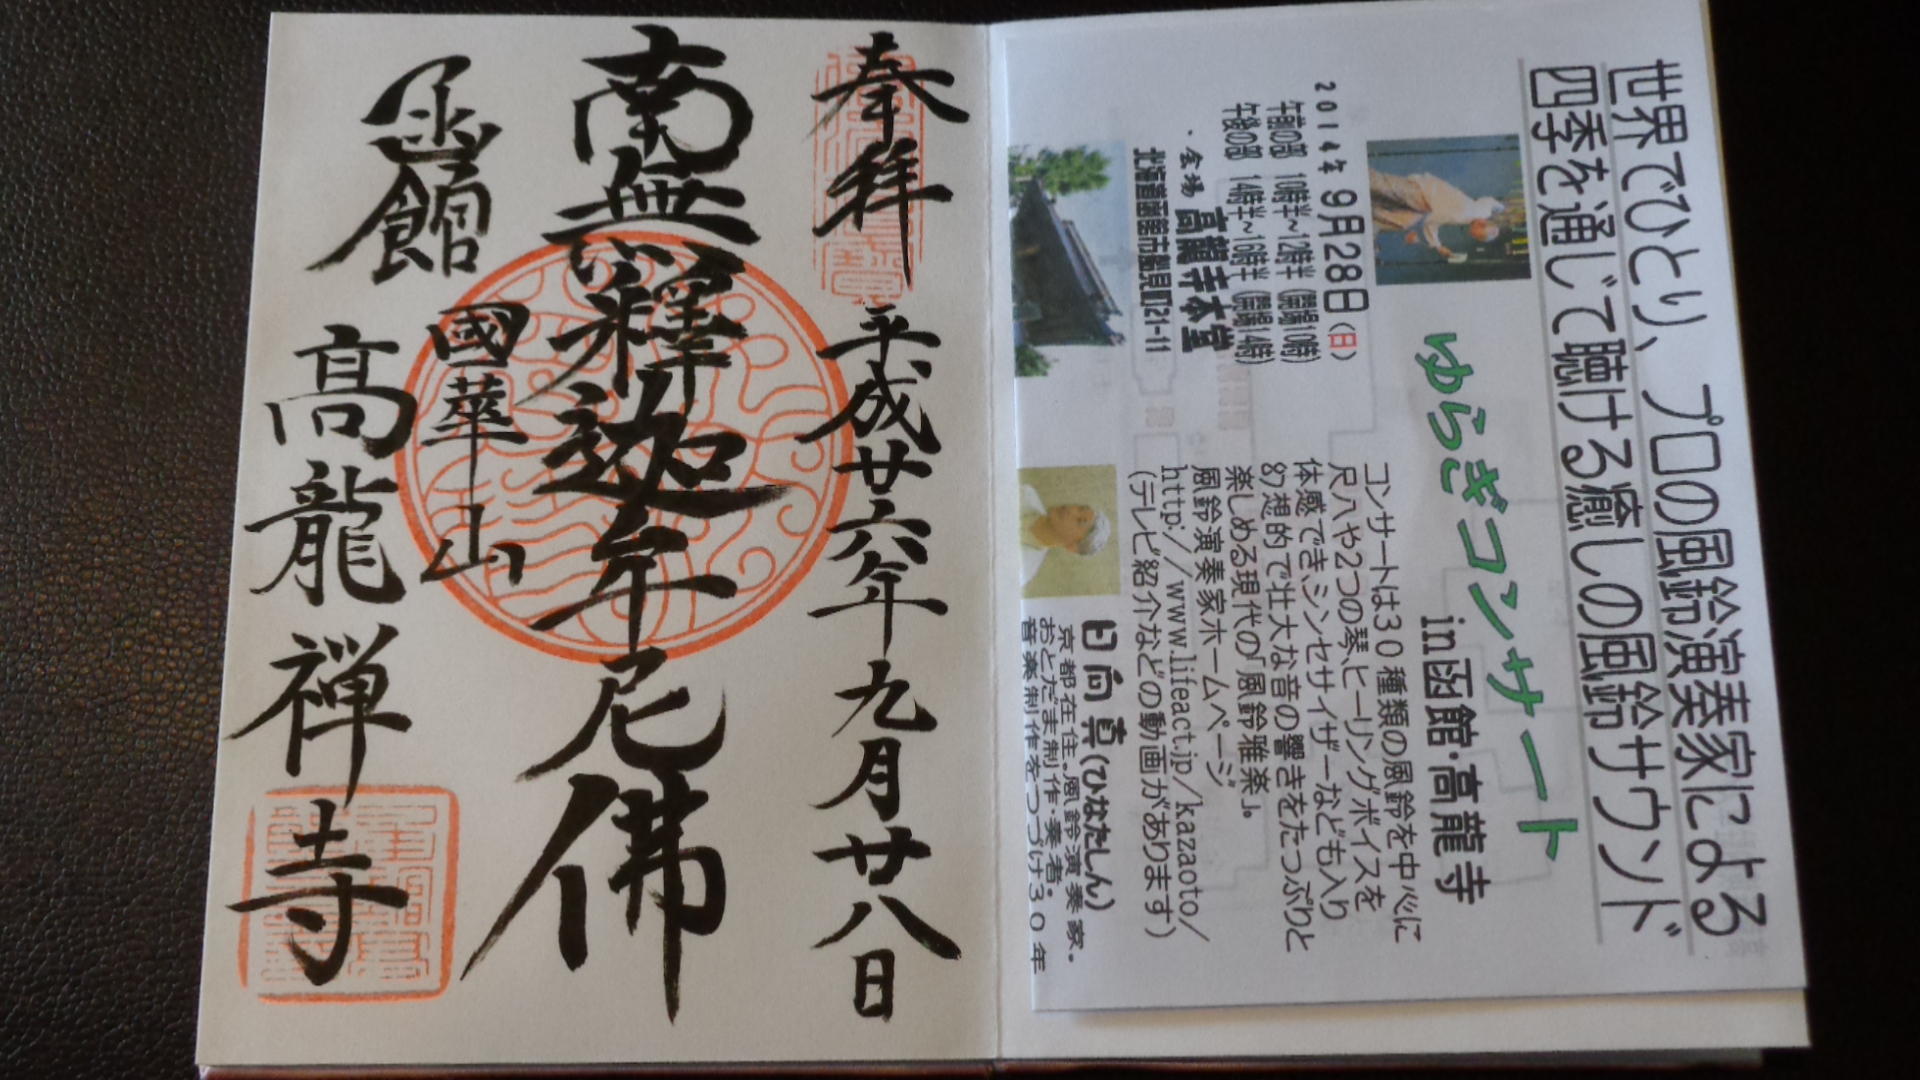 世界でひとり、プロの風鈴演奏家による
四季を通じて聴ける癒しの風鈴サウンド
ゆらぎコンサート
in函館・高龍寺
2014年 9月28日(日)
午前の部 10時半~12時半(開場10時)
午後の部 14時半~16時半(開場14時)
・会場 高龍寺本堂
北海道函館市船見町21-11
コンサートは30種類の風鈴を中心に
尺八や2つの琴、ヒーリングボイスを
体感でき、シンセサイザーなども入り
幻想的で壮大な音の響きをたっぷりと
楽しめる現代の「風鈴雅楽」。
風鈴演奏家ホームページ
http://www.lifeact.jp/kazaoto/
(テレビ紹介などの動画があります)
日向真(ひなたしん)
京都在住。風鈴演奏家・
おとだま制作・奏者。
音楽制作をつづけ30年
奉拝
平成廿六年九月廿八日
南無釋迦牟尼佛
國華山
函館
高龍禅寺